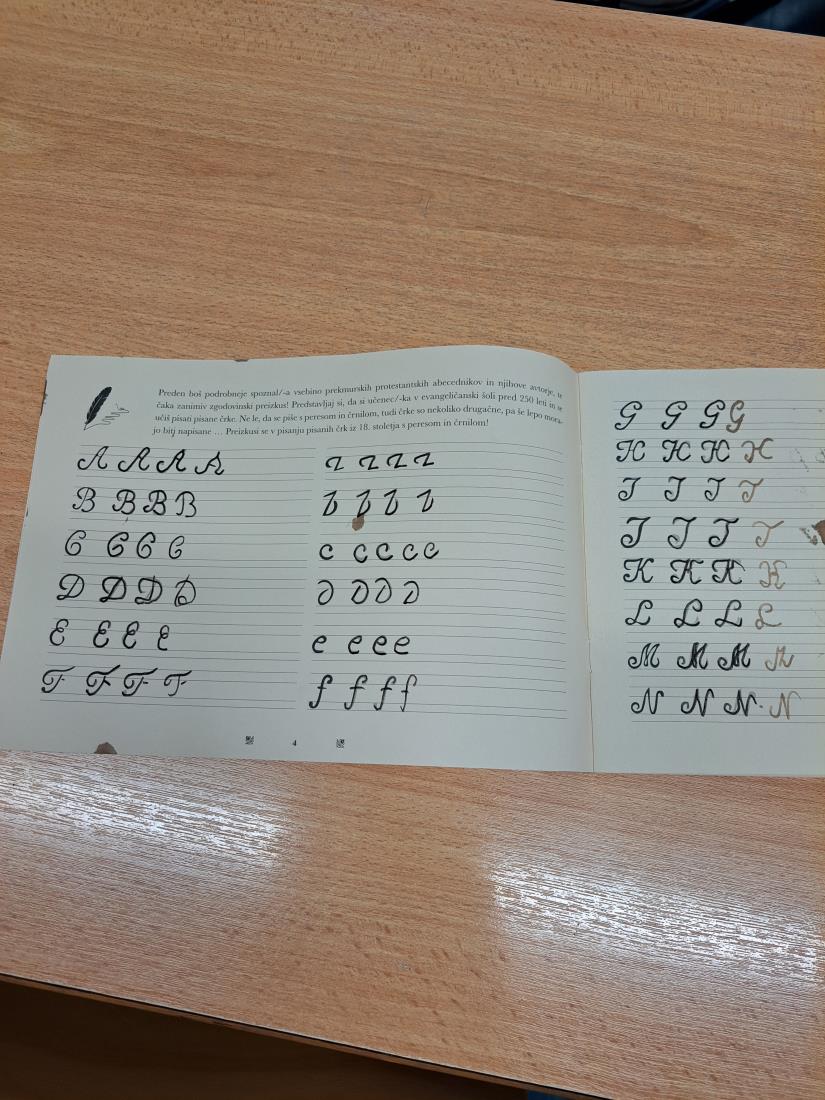 Preden boš podrobneje spoznal/-a vsebino prekmurskih protestantskih abecednikov in njihove avtorje, te
čaka zanimiv zgodovinski preizkus! Predstavljaj si, da si učenec/-ka v evangeličanski šoli pred 250 leti in se
učiš pisati pisane črke. Ne le, da se piše s peresom in črnilom, tudi črke so nekoliko drugačne, pa še lepo mora-
jo biti napisane … Preizkusi se v pisanju pisanih črk iz 18. stoletja s peresom in črnilom!
A A A A
B B B B
C C C C
D D D D
E E E E
F F F F
a a a a
b b b b
c c c c c
d d d d
e e e e
f f f f
4
G G G G
H H H H
I I I I
J J J J
K K K K
L L L L
M M M M
N N N N